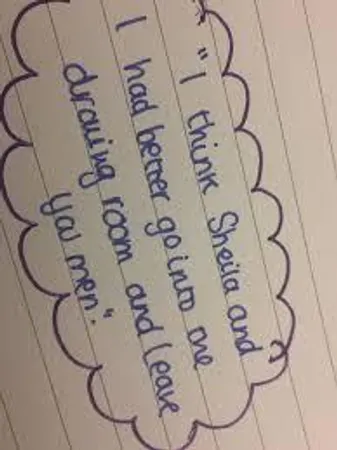 "I think Sheila and
I had better go into the
drawing room and leave
you men."